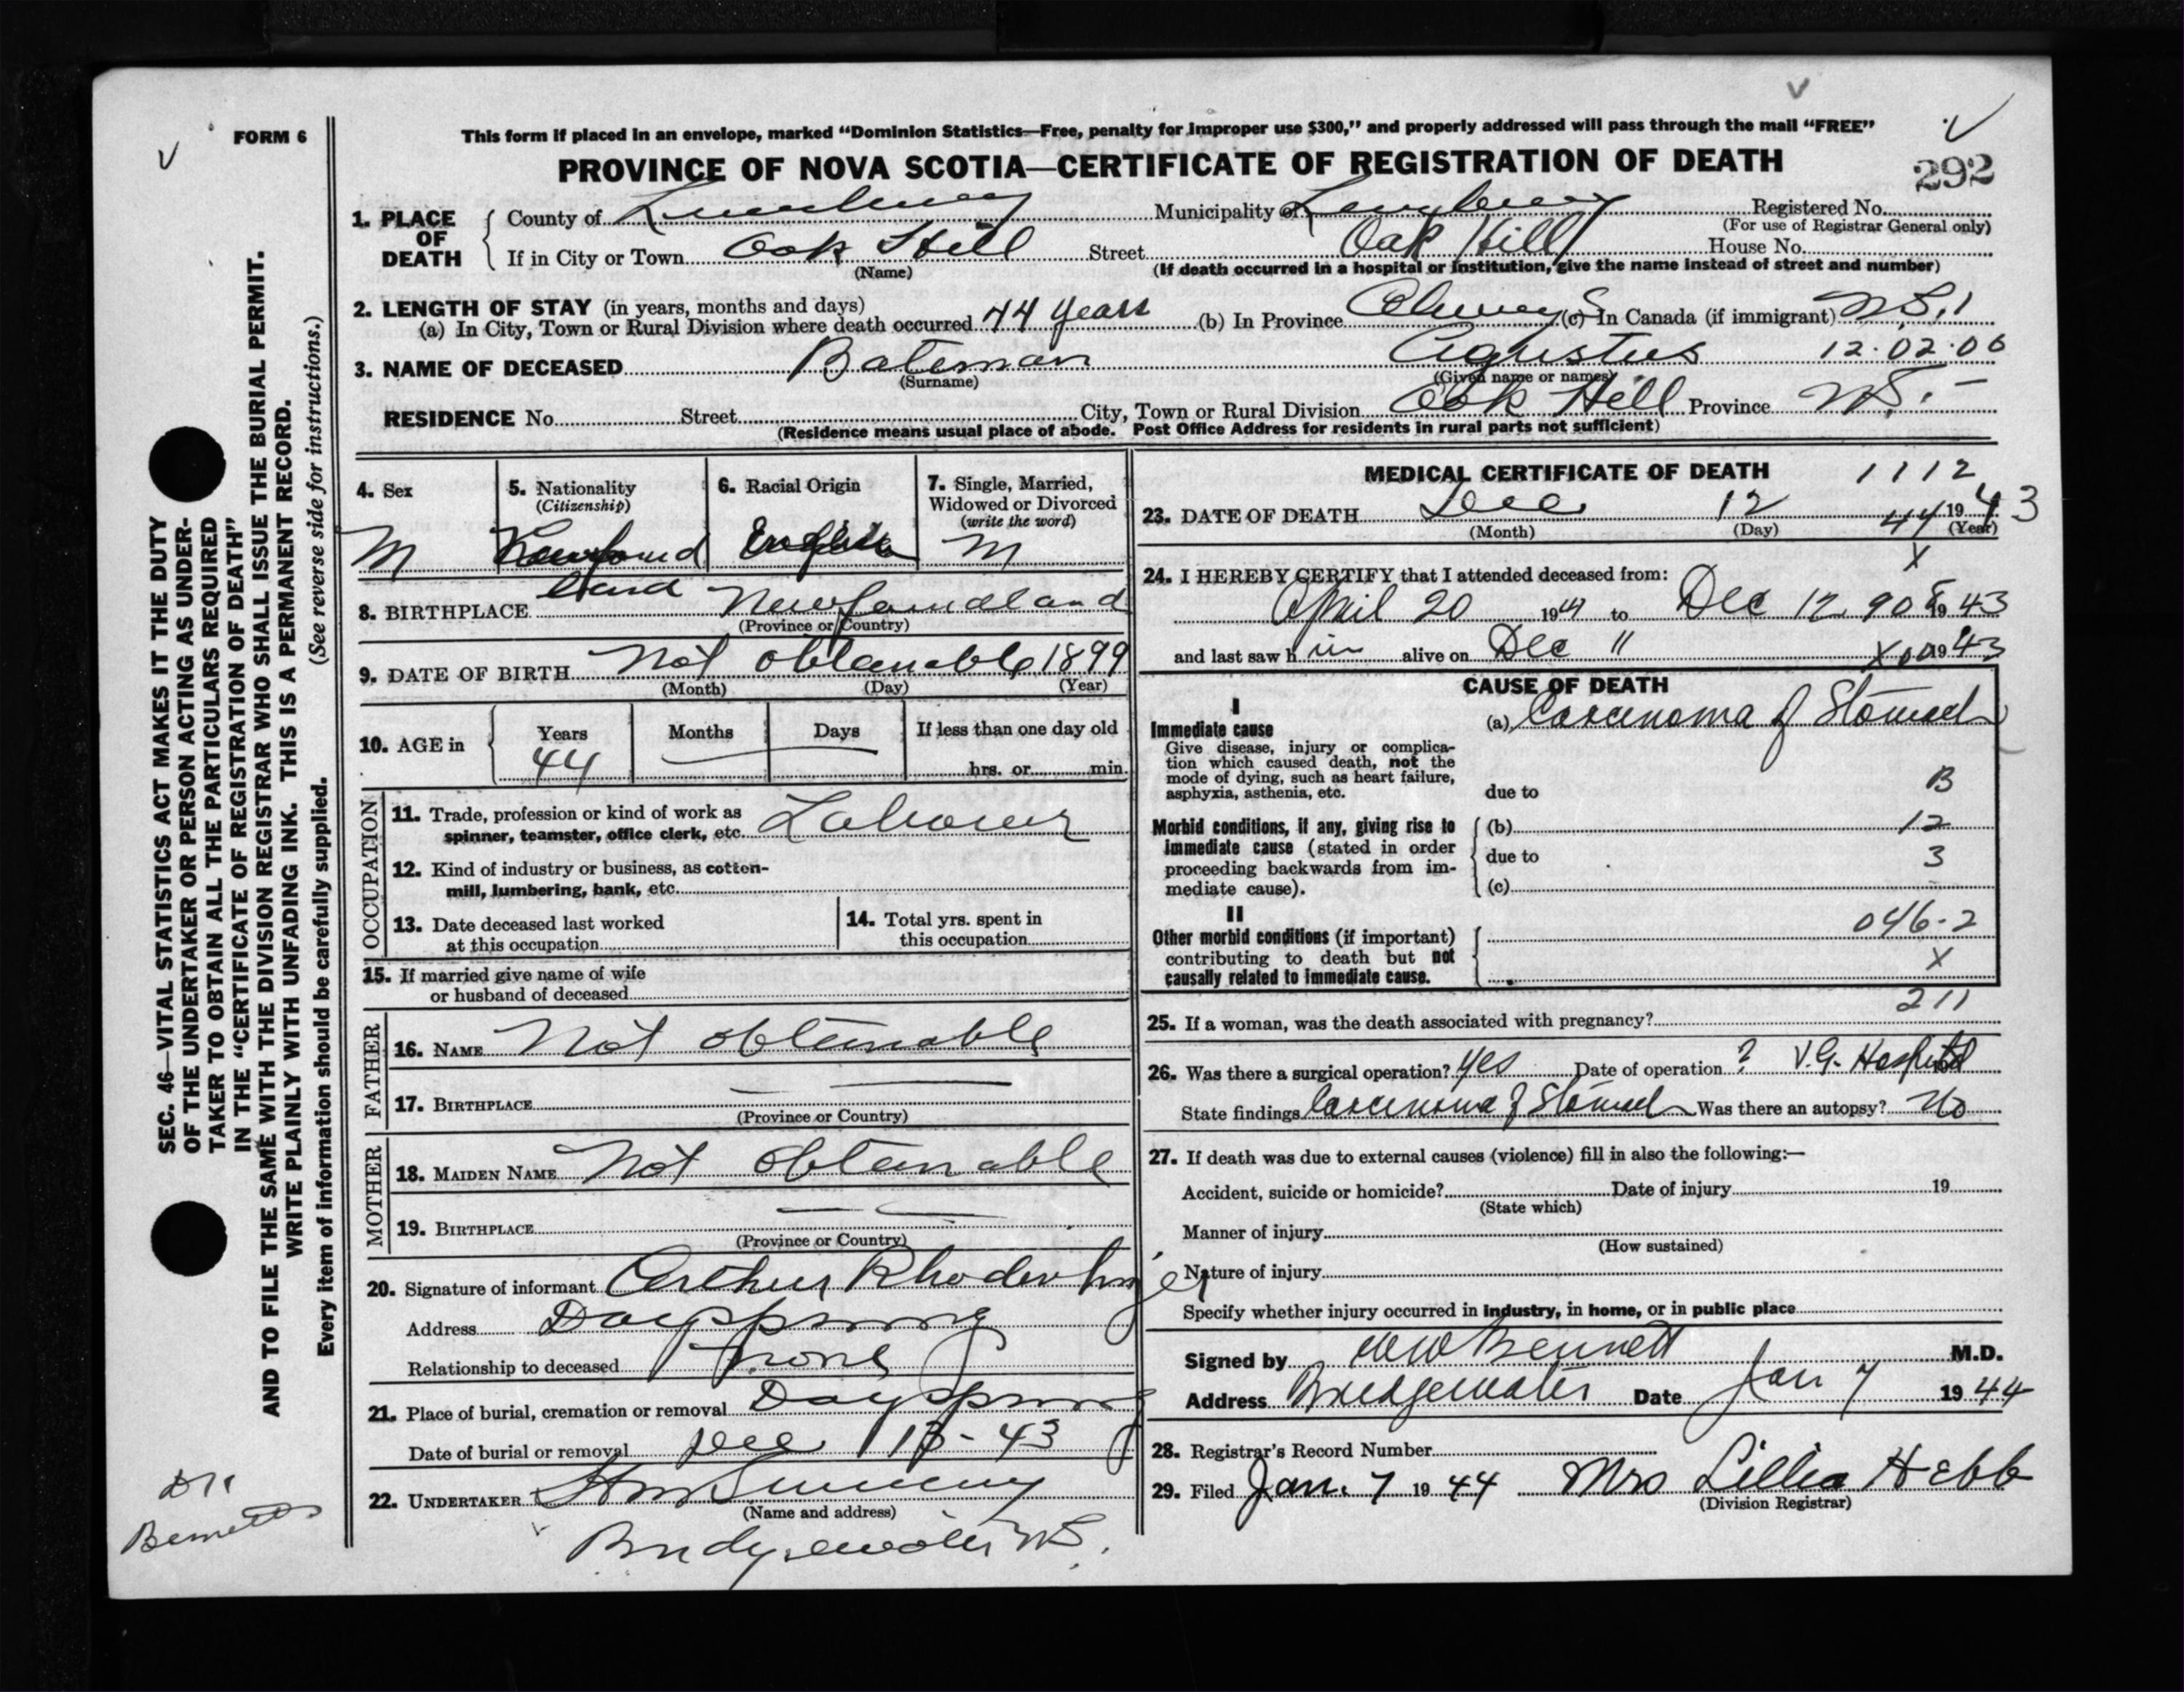 FORM 6
This form if placed in an envelope, marked “Dominion Statistics—Free, penalty for improper use $300,” and properly addressed will pass through the mail “FREE”
PROVINCE OF NOVA SCOTIA—CERTIFICATE OF REGISTRATION OF DEATH
292
1. PLACE OF DEATH
County of Lunenburg Municipality of Lunenburg Registered No.
(For use of Registrar General only)
If in City or Town Oak Hill Street Oak Hill House No.
(Name) (If death occurred in a hospital or institution, give the name instead of street and number)
2. LENGTH OF STAY (in years, months and days)
(a) In City, Town or Rural Division where death occurred 44 years (b) In Province (c) In Canada (if immigrant) N.S.
3. NAME OF DECEASED Bateman Agustus 12.02.06
(Surname) (Given name or names)
RESIDENCE No. Street City, Town or Rural Division Oak Hill Province N.S. -
(Residence means usual place of abode. Post Office Address for residents in rural parts not sufficient)
4. Sex 5. Nationality 6. Racial Origin 7. Single, Married,
(Citizenship) Widowed or Divorced
(write the word)
M Newfound English M
land
8. BIRTHPLACE Newfoundland
(Province or Country)
9. DATE OF BIRTH Not obtainable 1899
(Month) (Day) (Year)
10. AGE in Years Months Days If less than one day old
44 hrs. or min.
OCCUPATION
11. Trade, profession or kind of work as
spinner, teamster, office clerk, etc. Labourer
12. Kind of industry or business, as cotton-
mill, lumbering, bank, etc.
13. Date deceased last worked
at this occupation
14. Total yrs. spent in
this occupation
15. If married give name of wife
or husband of deceased
FATHER
16. NAME Not obtainable
17. BIRTHPLACE
(Province or Country)
MOTHER
18. MAIDEN NAME Not obtainable
19. BIRTHPLACE
(Province or Country)
20. Signature of informant Arthur Rhodenhizer
Address Dayspring
Relationship to deceased none
21. Place of burial, cremation or removal Dayspring
Date of burial or removal Dec 13-43
22. UNDERTAKER
(Name and address)
Bridgewater N.S.
MEDICAL CERTIFICATE OF DEATH 1112
23. DATE OF DEATH Dec 12 1943
(Month) (Day) (Year)
44
X
24. I HEREBY CERTIFY that I attended deceased from:
April 20 19 to Dec 12 1943
and last saw h im alive on Dec 11 1943
CAUSE OF DEATH
I
Immediate cause
Give disease, injury or complica-
tion which caused death, not the
mode of dying, such as heart failure,
asphyxia, asthenia, etc.
(a) Carcinoma of Stomach
due to B
Morbid conditions, if any, giving rise to
immediate cause (stated in order
proceeding backwards from im-
mediate cause).
(b) 12
due to 3
(c)
II
Other morbid conditions (if important)
contributing to death but not
causally related to immediate cause.
046-2
X
211
25. If a woman, was the death associated with pregnancy?
26. Was there a surgical operation? Yes Date of operation ? V.G. Hospital
State findings Carcinoma of Stomach Was there an autopsy? No
27. If death was due to external causes (violence) fill in also the following:—
Accident, suicide or homicide? Date of injury 19
(State which)
Manner of injury
(How sustained)
Nature of injury
Specify whether injury occurred in industry, in home, or in public place
Signed by Bennett M.D.
Address Bridgewater Date Jan 7 1944
28. Registrar's Record Number
29. Filed Jan. 7 1944 Mrs Lillia Hebb
(Division Registrar)
SEC. 46—VITAL STATISTICS ACT MAKES IT THE DUTY
OF THE UNDERTAKER OR PERSON ACTING AS UNDER-
TAKER TO OBTAIN ALL THE PARTICULARS REQUIRED
IN THE “CERTIFICATE OF REGISTRATION OF DEATH”
AND TO FILE THE SAME WITH THE DIVISION REGISTRAR WHO SHALL ISSUE THE BURIAL PERMIT.
WRITE PLAINLY WITH UNFADING INK. THIS IS A PERMANENT RECORD.
(See reverse side for instructions.)
Every item of information should be carefully supplied.
Dr
Bennett